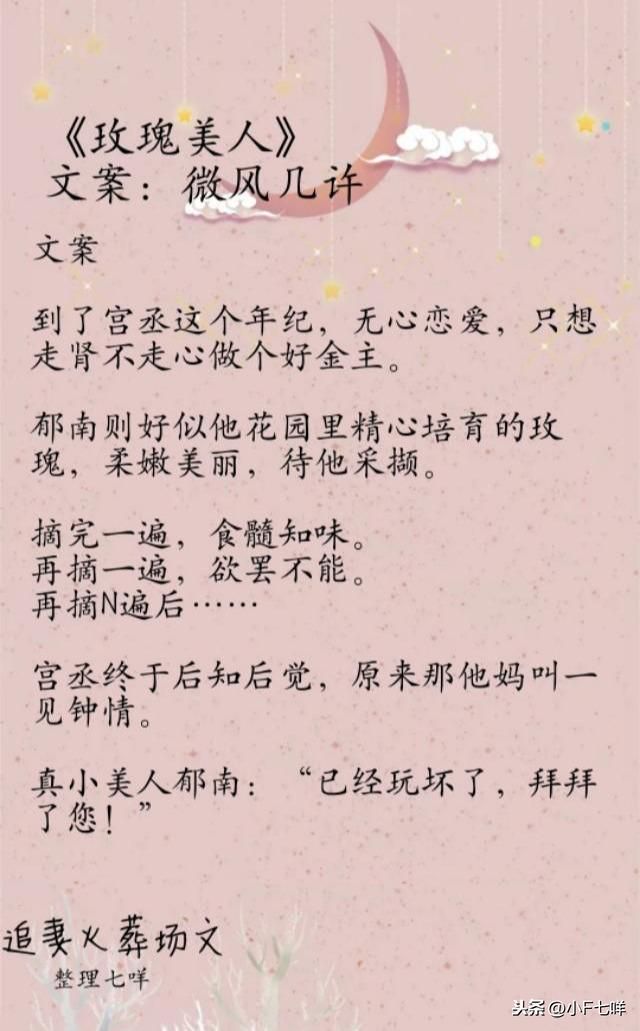 《玫瑰美人》
文案：微风几许
文案
到了宫丞这个年纪，无心恋爱，只想
走肾不走心做个好金主。
郁南则好似他花园里精心培育的玫
瑰，柔嫩美丽，待他采撷。
摘完一遍，食髓知味。
再摘一遍，欲罢不能。
再摘N遍后……
宫丞终于后知后觉，原来那他妈叫一
见钟情。
真小美人郁南：“已经玩坏了，拜拜
了您！”
追妻火葬场文
整理七咩
头条 @小F七咩